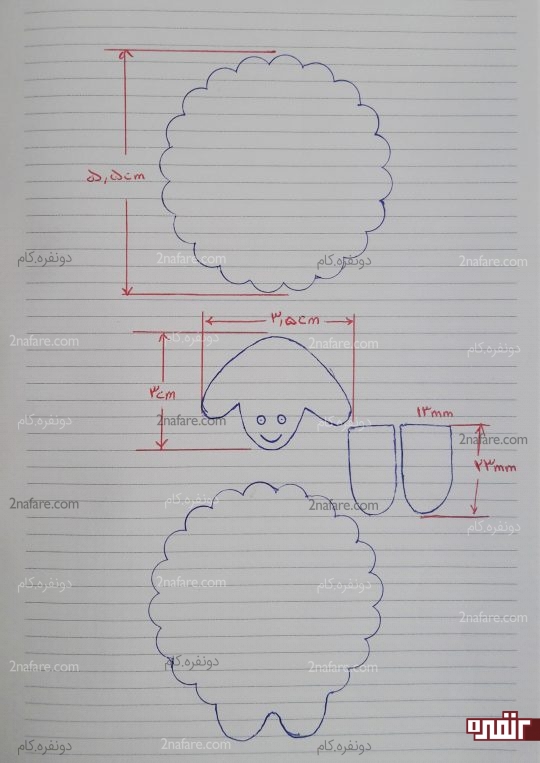 ۵,۵cm
دونفره.کام 2nafare.com دونفره.کام 2nafare.com
۳,۵cm
2nafare.com دونفره.کام 2nafare.com دونفره.کام
۳cm
۱۳mm
دونفره.کام 2nafare.com دونفره.کام 2nafare.com
۲۳mm
2nafare.com دونفره.کام 2nafare.com دونفره.کام
دونفره.کام 2nafare.com دونفره.کام 2nafare.com
2nafare.com دونفره.کام 2nafare.com
دونفره.کام 2nafare.com دونفره.کام